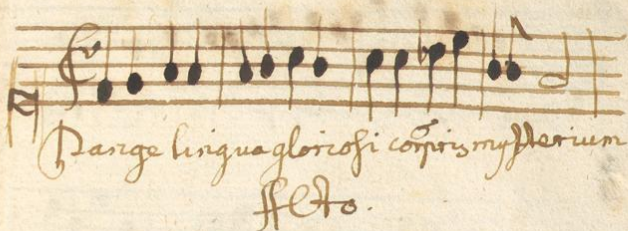 Pange lingua gloriosi corporis mysterium
Alto.